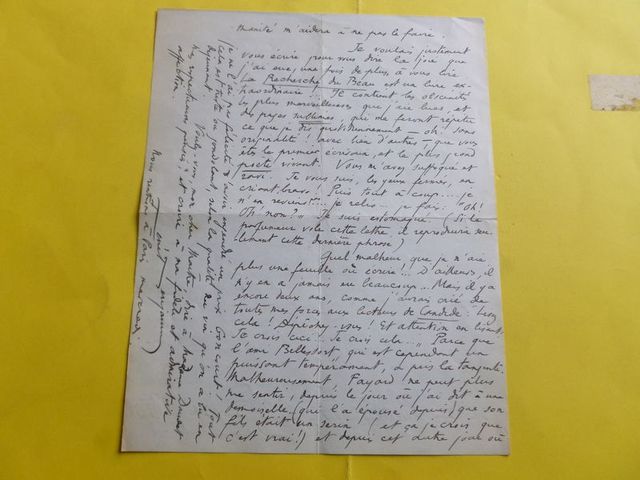 manité m'aidera à ne pas le faire.
Je voulais justement
vous écrire pour vous dire la joie que
j'ai eue, une fois de plus, à vous lire.
La Recherche du Beau est un livre ex-
traordinaire... Il contient les obscénités
les plus merveilleuses que j'aie lues, et
des pages sublimes, qui me feront répéter
ce que je dis quotidiennement — oh! sans
originalité! avec bien d'autres — que vous
êtes le premier écrivain, et le plus grand
poète vivant. Vous m'avez suffoqué et
ravi. Je vous suis, les yeux fermés, en
criant bravo! Puis tout à coup... je
n'en reviens!... je relis — je fais: "Oh!
Oh! non?" Je suis estomaqué (Si le
parfumeur vole cette lettre il reproduira seu-
lement cette dernière phrase)
Quel malheur que je n'aie
plus une feuille où écrire... D'ailleurs, il
n'y en a jamais eu beaucoup... Mais il y a
encore deux ans, comme j'aurais crié de
toutes mes forces aux lecteurs de Candide: Lisez
cela! Dépêchez-vous! Et attention en lisant.
Je crois ceci. Je crois cela... Parce que
l'ami Bellessort, qui est cependant un
puissant tempérament, a pris la tangente.
Malheureusement, Fayard ne peut plus
me sentir, depuis le jour où j'ai dit à une
demoiselle (qui l'a épousé depuis) que son
fils était un serin (et ça je crois que
c'est vrai!) et depuis cet autre jour où
je ne l'ai pas félicité d'avoir un prix Goncourt! Tout
cela est triste ou rigolo, selon la qualité du vin qu'on a bu en
déjeunant. Voulez-vous, mon cher Maître, dire à Madame Daudet
mes respectueuses pensées, et croire à ma fidèle et admirative
affection
Nous rentrons à Paris mercredi.